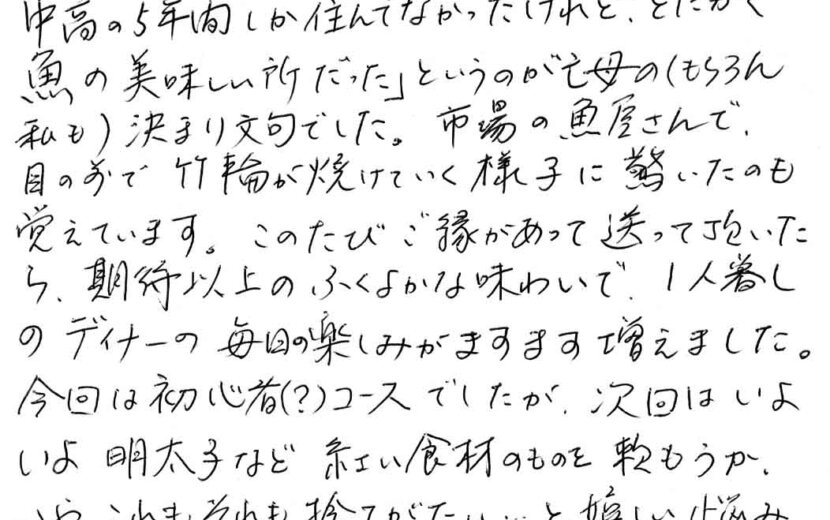 中高の5年間しか住んでなかったけれど、とにかく
魚の美味しい所だった」というのが亡母の(もちろん
私も)決まり文句でした。市場の魚屋さんで、
目の前で竹輪が焼けていく様子に驚いたのも
覚えています。このたびご縁があって送って頂いた
ら、期待以上のふくよかな味わいで、1人暮し
のディナーの毎日の楽しみがますます増えました。
今回は初心者(?)コースでしたが、次回はいよ
いよ明太子など紅い食材のものを もうか、
これもそれも捨てがたい…と嬉しい悩み